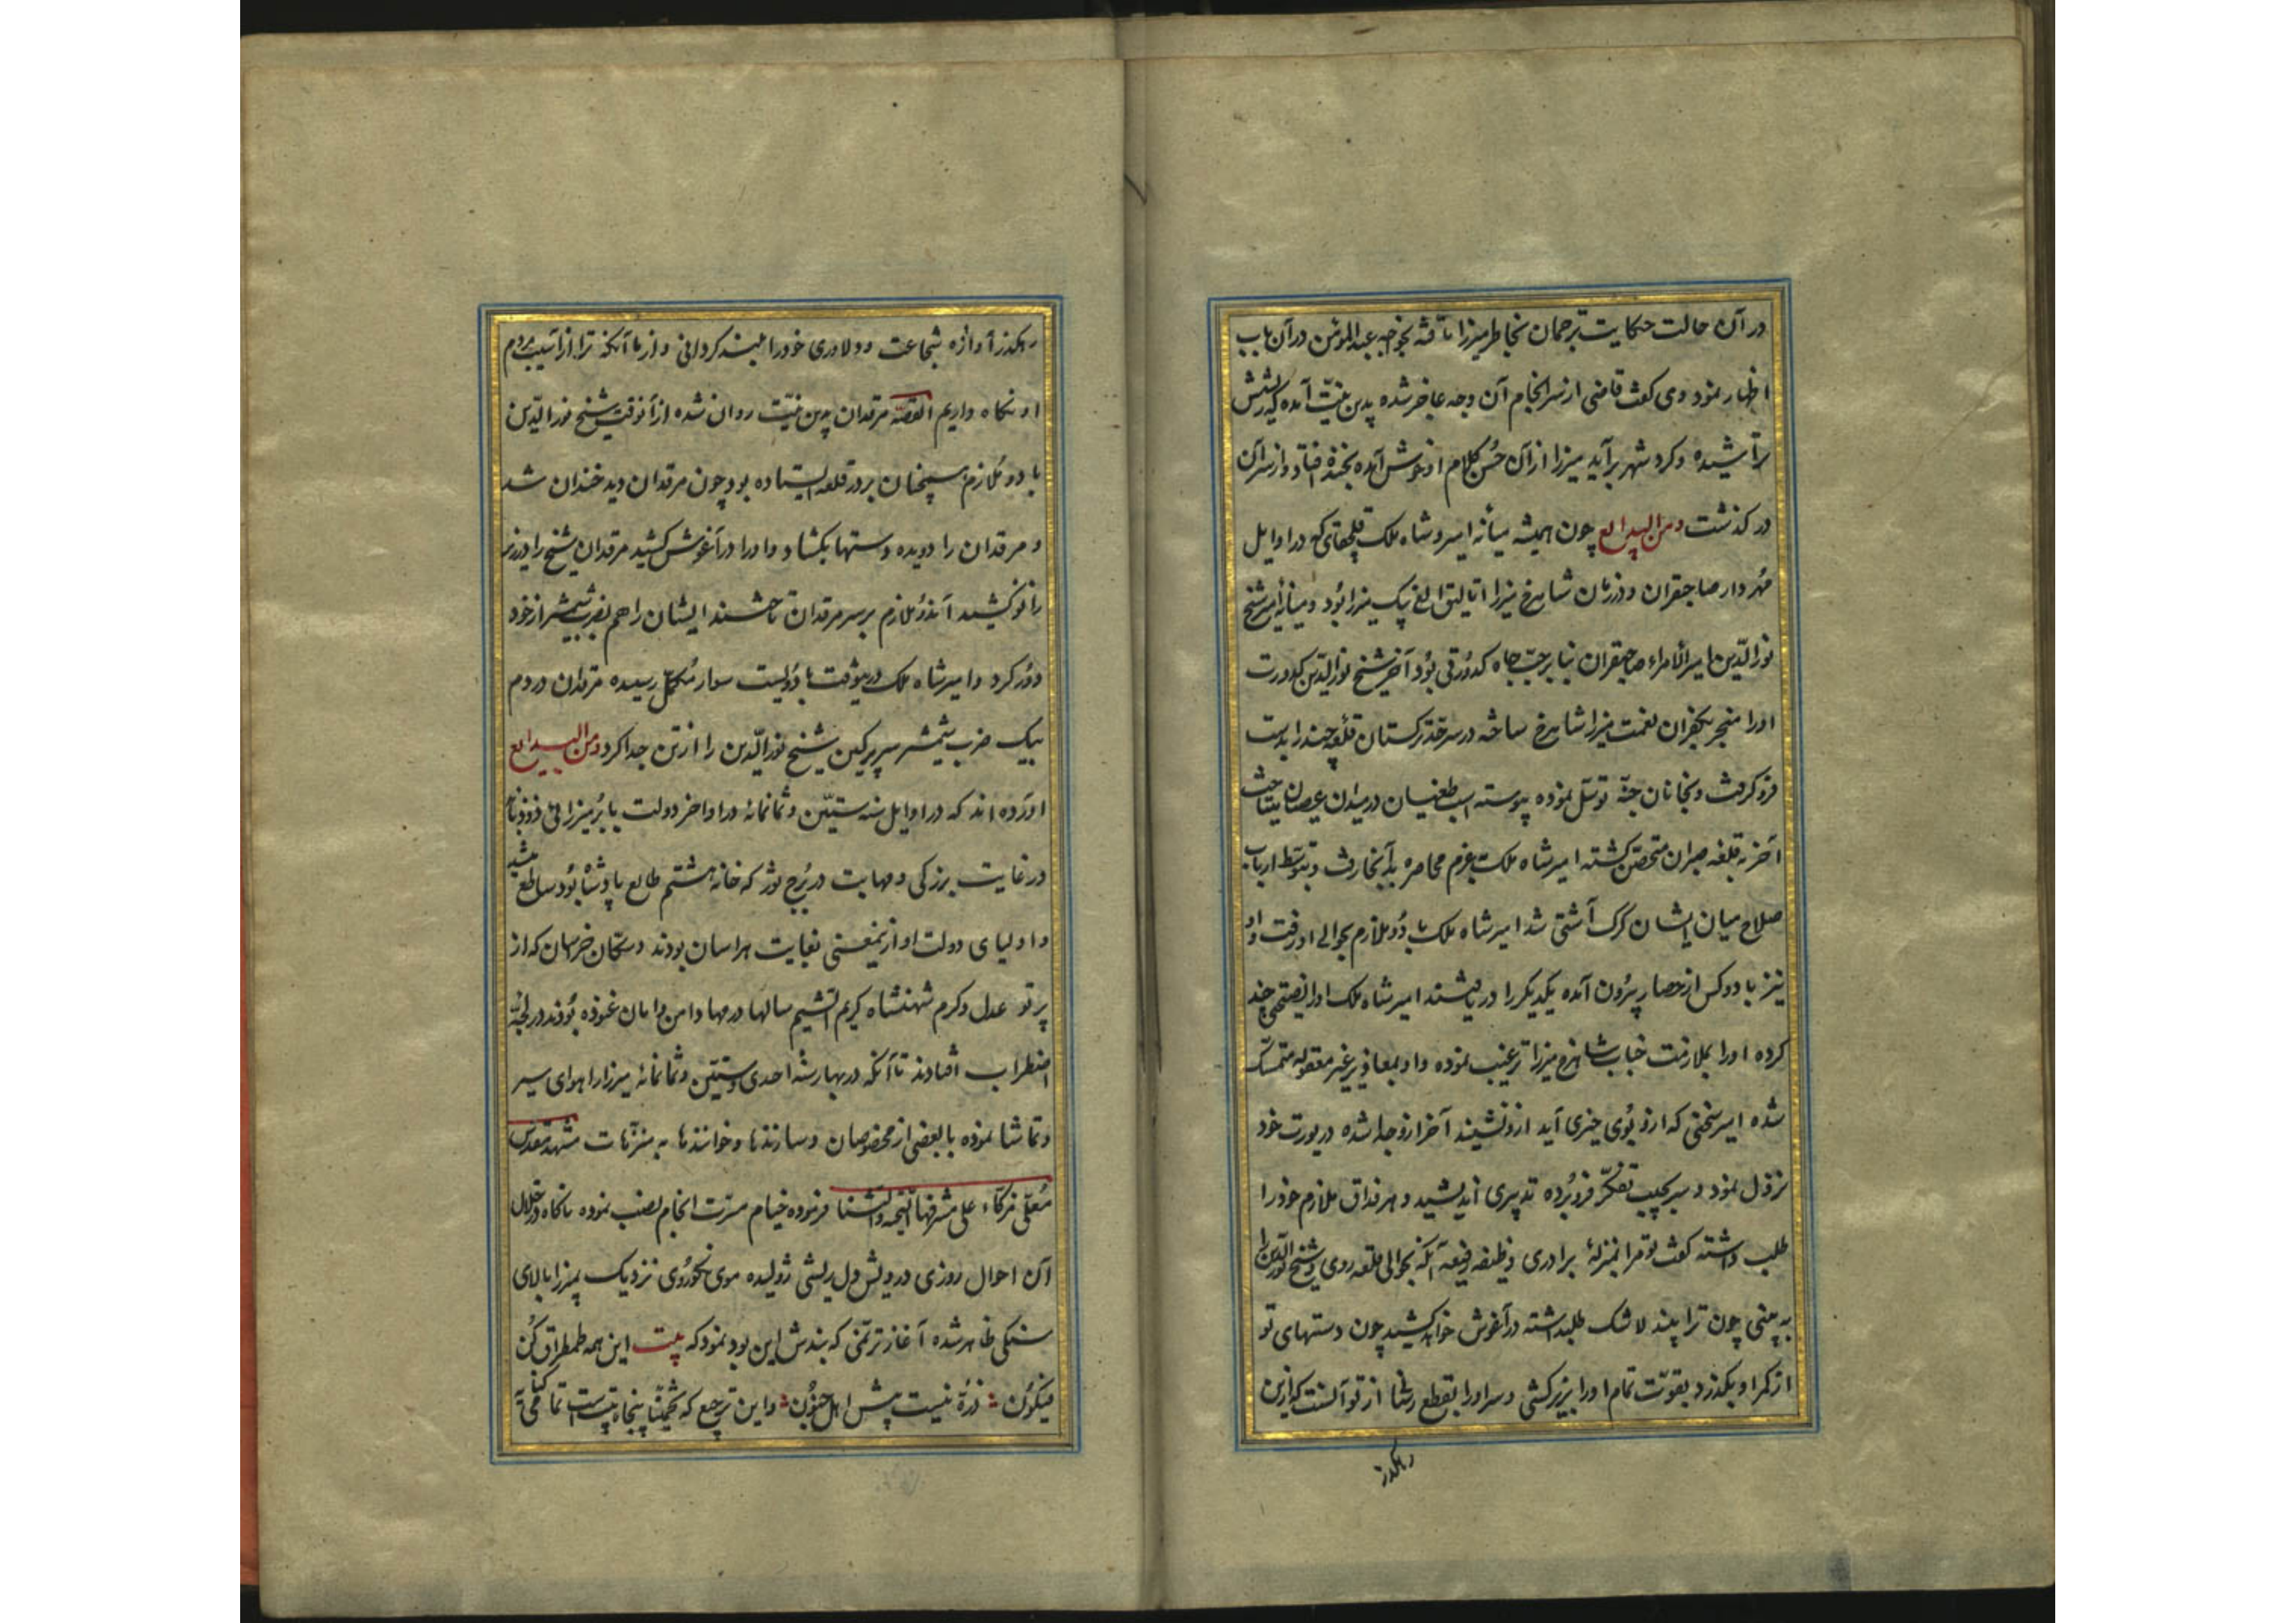 در آن حالت حکایت ترجمان بخاطر میرزا تافته بخواجه عبدالمؤمن در آن باب
اظهار نمود وی کفت قاضی از سرانجام آن وجه عاجز شده بدین نیت آمده که ریشش
تراشیده و کرد شهر برآید میرزا از آن حسن کلام او خوش آمده بخنده افتاد و از سر آن
در کذشت ومن البدایع چون همیشه میانه امیر شاه ملک که در اوایل
مهردار صاحبقران و در زمان شاهرخ میرزا اتالیق الغ بیک میرزا بود و میانه امیر شیخ
نورالدین امیر الامراء صاحبقران بنا بر حب جاه کدورتی بود آخر شیخ نورالدین کدورت
اورا منجر بکفران نعمت میرزا شاهرخ ساخته در سرحد ترکستان قلعه چند را بدست
فرو کرفت و بخانان جته توسل نموده پیوسته اسب طغیان در میدان عصیان میتاخت
آخر به قلعه صبران متحصن کشته امیر شاه ملک بعزم محاصره بدآنجا رفت و بتوسط ارباب
صلاح میان ایشان کرک آشتی شد امیر شاه ملک با دو ملازم بحوالی او رفت و او
نیز با دو کس از حصار بیرون آمده یکدیکر را دریافتند امیر شاه ملک اورا نصیحتی چند
کرده اورا بملازمت جناب شاهرخ میرزا ترغیب نموده و او بمعاذیر غیر معقوله متمسک
شده امیر سخنی که ازو بوی چیزی آید ازو نشنید آخر ازو جدا شده در یورت خود
نزول نمود و سر بجیب تفکر فرو برده تدبیری اندیشید و مرقداق ملازم خودرا
طلب داشته کفت تو مرا بمنزلهٔ برادری وظیفه آنکه بحوالی قلعه روی و شیخ نورالدین را
به بینی چون ترا بیند لاشک طلبداشته در آغوش خواهد کشید چون دستهای تو
از کمر او بکذرد بقوت تمام اورا بزیر کشی و سر اورا بقطع رسانی از تو آنست که ازین
رهکذر
رهکذر آوازه شجاعت و دلاوری خودرا بلند کردانی و از ما آنکه ترا از آسیب مردم
او نکاه داریم القصه مرقدان بدین نیت روان شده از آنوقت شیخ نورالدین
با دو ملازم سپخنان بر در قلعه ایستاده بود چون مرقدان دید خندان شد
و مرقدان را دویده دستها بکشاد و اورا در آغوش کشید مرقدان شیخ را در زیر
زانو کشید آندو ملازم بر سر مرقدان تاختند ایشان را هم بضرب شمشیر از خود
دور کرد و امیر شاه ملک درینوقت با دویست سوار مکمل رسیده مرقدان در دم
بیک ضرب شمشیر سر پرکین شیخ نورالدین را از تن جدا کرد ومن البدایع
آورده اند که در اوایل سنه ستین و ثمانمائه در اواخر دولت بابر میرزا
در غایت بزرکی و مهابت در برج ثور که خانه هشتم طالع پادشاه بود ساطع میشد
و اولیای دولت او ازینمعنی بغایت هراسان بودند و سکان خراسان که از
پرتو عدل و کرم شهنشاه کریم الشیم سالها در مهاد امن و امان غنوده بودند در لجهٔ
اضطراب افتادند تا آنکه در بهار سنه احدی و ستین و ثمانمائه میرزا را هوای سیر
و تماشا نموده با بعضی از مخصوصان و سازندها و خوانندها به مشهد مقدس
علی مشرفها التحیه والثنا فرموده خیام مسرت انجام نصب نموده ناکاه در خلال
آن احوال روزی درویش دل ریشی ژولیده موی نزدیک میرزا بالای
سنکی ظاهر شده آغاز ترنمی که بندش این بود نمود که بیت این همه طمطراق کن
فیکون ذرهٔ نیست پیش اهل جنون و این ترجیع که تخمینا پنجاه بیت است تمام